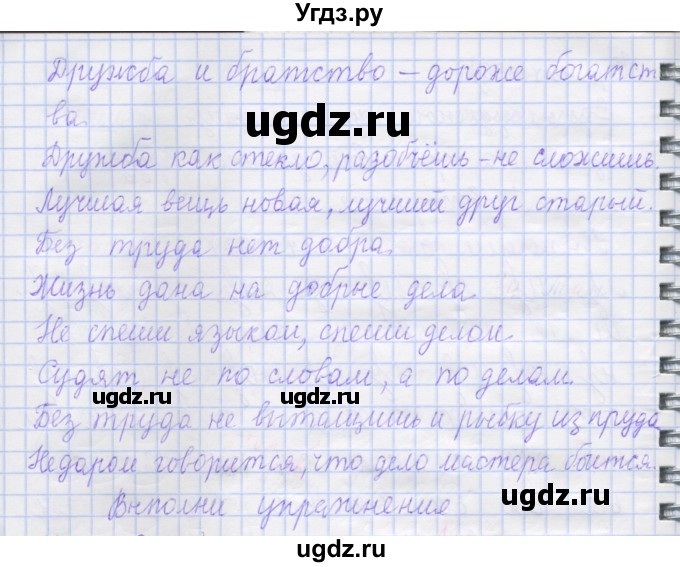 Угдз.ру
Дружба и братство – дороже богатст
ва.
ugdz.ru
ugdz.ru
Дружба как стекло, разабчёшь – не сложишь.
Лучшая вещь новая, лучший друг старый.
Без труда нет добра.
Жизнь дана на добрые дела.
Не спеши языком, спеши делом.
Судят не по словам, а по делам.
ugdz.ru
ugdz.ru
Без труда не вытащишь и рыбку из пруда
Недаром говорится, что дело мастера боится.
Выполни упражнения
ugdz.ru
ugdz.ru